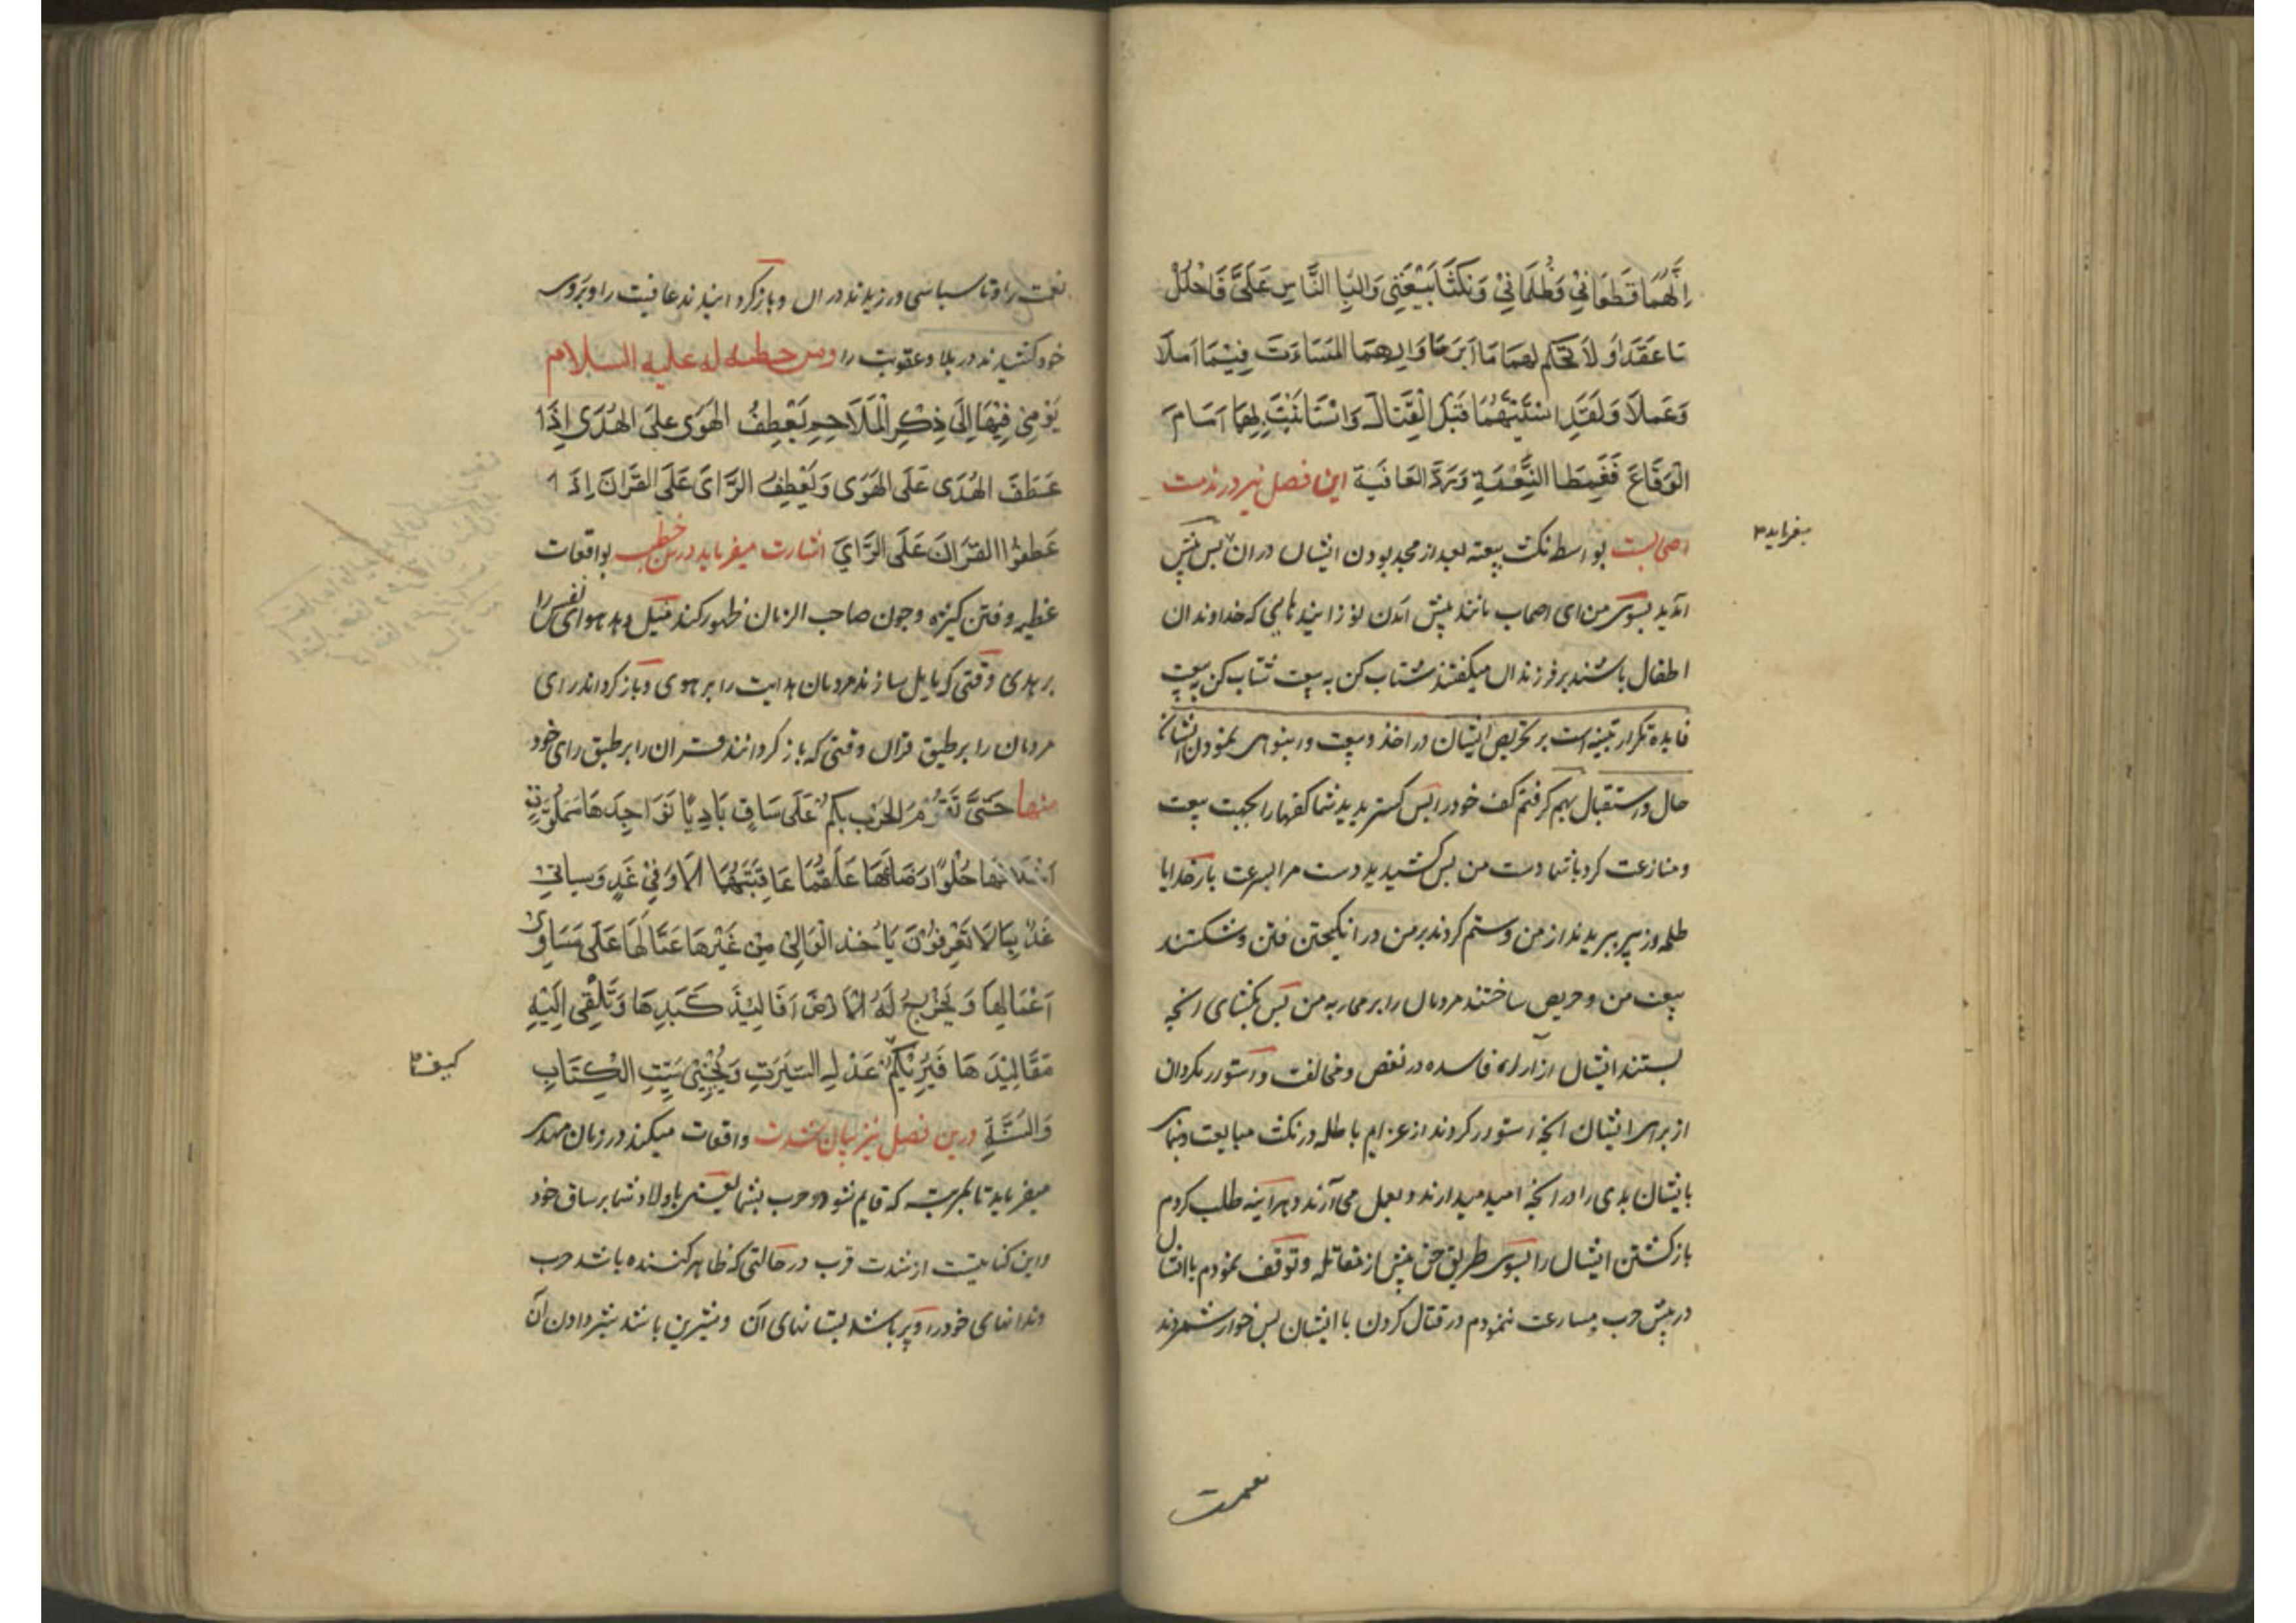 اِنَّهُمَا قَطَعَانِيْ وَظَلَمَانِيْ وَنَكَثَا بَيْعَتِيْ وَالَّبَا النَّاسَ عَلَيَّ فَاحْلُلْ
مَا عَقَدَا وَلَا تُحْكِم لهمَا مَا اَبْرَمَا وَارِهِمَا المَسَاءَتَ فِيْمَا اَمَلَا
وَعَمِلَا وَلَقَدِ اسْتَثَبْتُهُمَا قَبْلَ الْقِتَالِ وَاسْتَأنَيْتُ بِهِمَا اَمَامَ
الْوِقَاعِ فَغَمِطَا النِّعْمَةِ وَرَدَّ العَافِيَة این فصل نیز در مذمت
اصحابست بواسطه نکث بیعته بعد از مجد بودن ایشان در ان پس پیش
میفراید
آمدید بسوی من ای اصحاب مانند پیش آمدن نوزایندهایی که خداوندان
اطفال باشند بر فرزندان میگفتند شتاب کن به بیعت شتاب کن به بیعت
فایده تکرار تنبیه است بر تحریص ایشان در اخذ وبیعت و نمودن ایشان
حال و استقبال بهم گرفتم کف خود را پس گستریدید شما کفها را بجهت بیعت
و منازعت کرد با شما دست من پس کشیدید دست مرا بسرعت بار خدایا
طلحه و زبیر ببریدند از من و ستم کردند بر من در انگیختن فتن و شکستند
بیعت من و حریص ساختند مردمان را بر محاربه من پس بگشای انچه
بستند ایشان از آراء فاسده در نقض و مخالفت و استوار مگردان
از برای ایشان انچه استوار کردند از عزایم باطله در نکث مبایعت و بنمای
بایشان بدی را در انچه امید میدارند و بعمل می آرند و هرآینه طلب کردم
بازگشتن ایشان را بسوی طریق حق پیش از مقاتله و توقف نمودم با ایشان
در پیش حرب و مسارعت ننمودم در قتال کردن با ایشان پس خوار شمردند
نعمت
نعمت را و ناسپاسی ورزیدند در ان و باز گردانیدند عافیت را و بروی
خود کشیدند در بلا و عقوبت را ومن خطبه له علیه السلام
يُؤمِيْ فِيْهَا اِلَى ذِكْرِ الْمَلَاحِمِ يَعْطِفُ الْهَوَى عَلَى الهُدَى اِذَا
عَطَفَ الهُدَى عَلَى الهَوَى وَيَعْطِفُ الرَّاىَ عَلَى القُرْانَ اِذَا
عَطَفُوْا القُرَانَ عَلَى الرَّايَ اشارت میفرماید درین خطبه بواقعات
عظیمه و فتن کثیره و چون صاحب الزمان ظهور کند میل دهد هوای نفس را
بر هدی وقتی که مایل سازند مردمان هدایت را بر هوی و باز گرداند رای
مردمان را بر طبق قران وقتی که باز گردانند قران را بر طبق رای خود
منها حَتَّى تَقُوْمُ الحَرْبِ بِكُمْ عَلَى سَاقٍ بَادِيًا نَوَاجِذَهَا مَمْلُوَّةٍ
اَخْلَافُهَا حُلْوًا رَضَاعُهَا عَلْقَمًا عَاقِبَتُهَا اَلَا وَفِيْ غَدٍ وَسياتي
غَدٌ بِمَا لَا تَعْرِفُوْنَ يَاْخُذ الْوَالِيْ مِنْ غَيْرِهَا عُمَّالَهَا عَلَى مَسَاوِى
اَعْمَالِهَا وَيَخْرُجُ لَهُ الْاَرْضَ اَفَالِيْذَ كَبَدِهَا وَتُلْقِى اِلَيْهِ
مَقَالِيْدَهَا فَيُرِيْكُمْ عَدْلِ السِّيَرَتِ وَيُحْيِيْ مَيِّتِ الْكِتَابِ
کیف
وَالسُّنَّةِ درین فصل نیز بیان شدت واقعات میکند در زمان مهدی
میفرماید تا بمرتبه که قایم شود حرب بشما یعنی باولاد شما بر ساق خود
و این کنایتست از شدت حرب در حالتی که ظاهر کننده باشد حرب
دندانهای خود را و پر باشد پستانهای آن و شیرین باشد شیر دادن آن